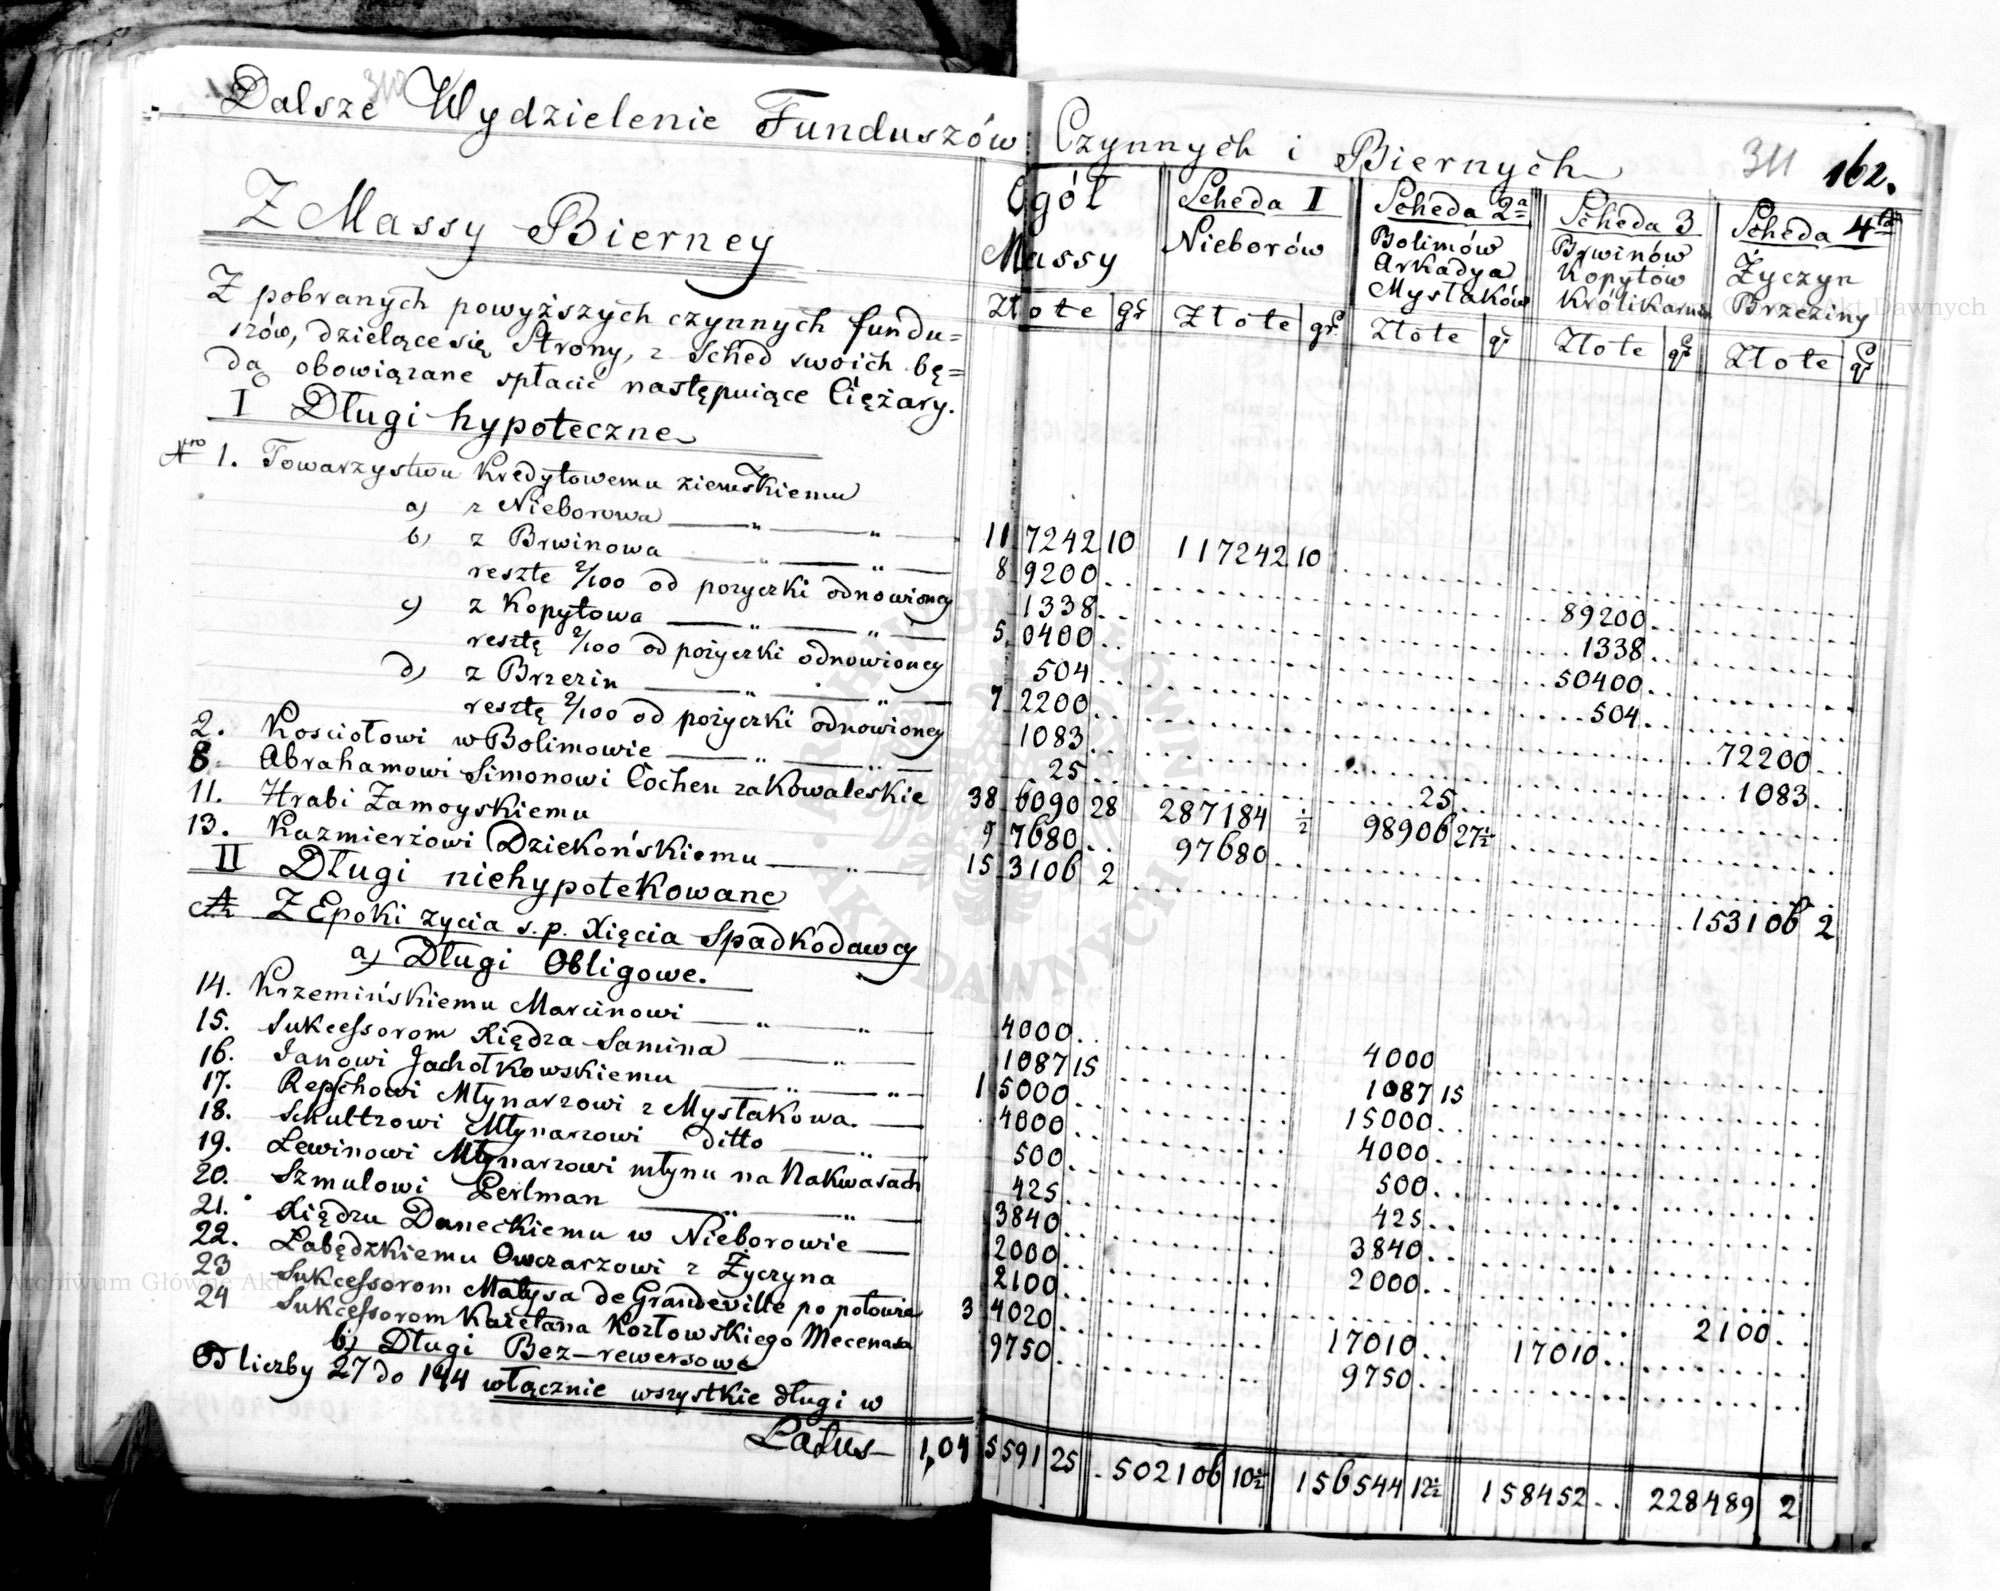 Dalsze Wydzielenie Funduszów Czynnych i Biernych 311 162.
Z Massy Bierney
Ogół Massy
Scheda I Nieborów
Scheda 2a Bolimów Arkadya Mysłaków
Scheda 3 Brwinów Kopytów Królikarnia
Scheda 4ta Życzyn Brzeziny
Złote gr Złote gr. Złote gr Złote gr Złote gr
Z pobranych powyższych czynnych fundu=
szów, dzielące się Strony, z Sched swoich bę=
dą obowiązane spłacić następuiące Ciężary.
I Długi hypoteczne
Nro 1. Towarzystwu Kredytowemu ziemskiemu
a) z Nieborowa — „ — „ — 117242 10 117242 10
b) z Brwinowa — „ — „ — 89200 .. 89200 ..
resztę 2/100 od pożyczki odnowioney 1338 .. 1338 ..
c) z Kopytowa — „ — „ — 50400 .. 50400 ..
resztę 2/100 od pożyczki odnowioney 504 .. 504 ..
d) z Brzezin — „ — „ — 72200 .. 72200 ..
resztę 2/100 od pożyczki odnowioney 1083 .. 1083 ..
2. Kosciołowi w Bolimowie — „ — „ — 25 .. 25 ..
8. Abrahamowi Simonowi Cochen za Kowaleskie 386090 28 287184 1/2 98906 27 1/2
11. Hrabi Zamoyskiemu 97680 .. 97680 ..
13. Kazmierzowi Dziekońskiemu — „ — 153106 2 153106 2
II Długi niehypotekowane
A Z Epoki zycia s. p. Xięcia Spadkodawcy
a) Długi Obligowe.
14. Krzemińskiemu Marcinowi — „ — „ — 4000 .. 4000
15. Sukcessorom Xiędza Samina — „ — 1087 15 1087 15
16. Janowi Jachołkowskiemu — „ — „ — 15000 .. 15000 ..
17. Repchowi Młynarzowi z Mysłakowa. — 4000 .. 4000 ..
18. Schultzowi Młynarzowi ditto — „ — 500 .. 500 ..
19. Lewinowi Młynarzowi młynu na Nakwasach 425 .. 425 ..
20. Szmulowi Perlman — „ — „ — 3840 .. 3840 ..
21. Xiędzu Daneckiemu w Nieborowie — 2000 .. 2000 ..
22. Łabędzkiemu Owczarzowi z Życzyna 2100 .. 2100 ..
23 Sukcessorom Matysa de Grandeville po połowie 34020 .. 17010 .. 17010 ..
24 Sukcessorom Kaietana Kozłowskiego Mecenasa 9750 .. 9750 ..
b) Długi Bez-rewersowe
Od liczby 27 do 194 włącznie wszystkie długi w
Latus 1,045591 25 502106 10 1/2 156544 12 1/2 158452 .. 228489 2
ARCHIWUM GŁÓWNE AKT DAWNYCH
Archiwum Główne Akt Dawnych
Archiwum Główne Akt Dawnych